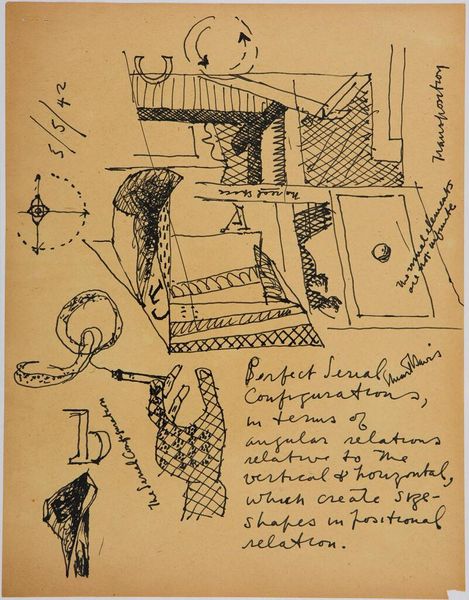 5/5/42
Transposition
No real space
The visual elements
are not infinite
The Serial Configuration
Perfect Serial
Configurations,
in terms of
angular relations
relative to the
vertical & horizontal,
which create size-
shapes in positional
relation.
Stuart Davis